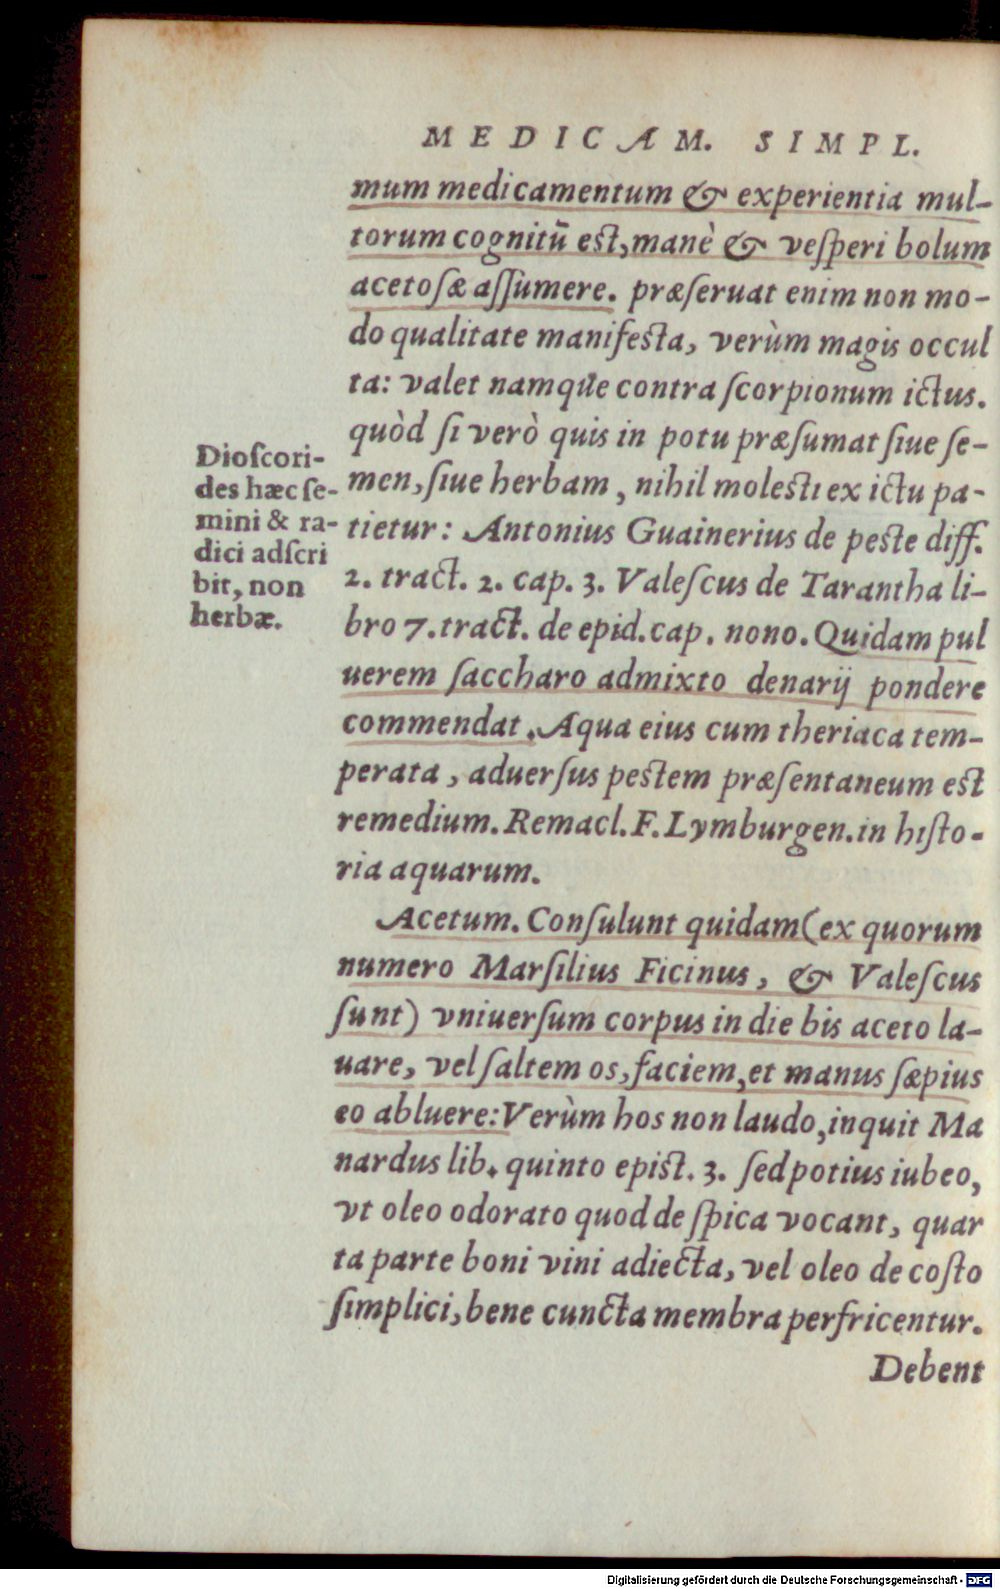 MEDICAM. SIMPL.
mum medicamentum & experientia mul-
torum cognitū est, manè & vesperi bolum
acetosæ assumere. præseruat enim non mo-
do qualitate manifesta, verùm magis occul
ta: valet namque contra scorpionum ictus.
quòd si verò quis in potu præsumat siue se-
men, siue herbam, nihil molesti ex ictu pa-
tietur: Antonius Guainerius de peste diff.
2. tract. 2. cap. 3. Valescus de Tarantha li-
bro 7. tract. de epid. cap. nono. Quidam pul
uerem saccharo admixto denarij pondere
commendat. Aqua eius cum theriaca tem-
perata, aduersus pestem præsentaneum est
remedium. Remacl. F. Lymburgen. in histo-
ria aquarum.
Dioscori-
des hæc se-
mini & ra-
dici adscri
bit, non
herbæ.
Acetum. Consulunt quidam (ex quorum
numero Marsilius Ficinus, & Valescus
sunt) vniuersum corpus in die bis aceto la-
uare, vel saltem os, faciem, et manus sæpius
eo abluere: Verùm hos non laudo, inquit Ma
nardus lib. quinto epist. 3. sed potius iubeo,
vt oleo odorato quod de spica vocant, quar
ta parte boni vini adiecta, vel oleo de costo
simplici, bene cuncta membra perfricentur.
Debent
Digitalisierung gefördert durch die Deutsche Forschungsgemeinschaft - DFG